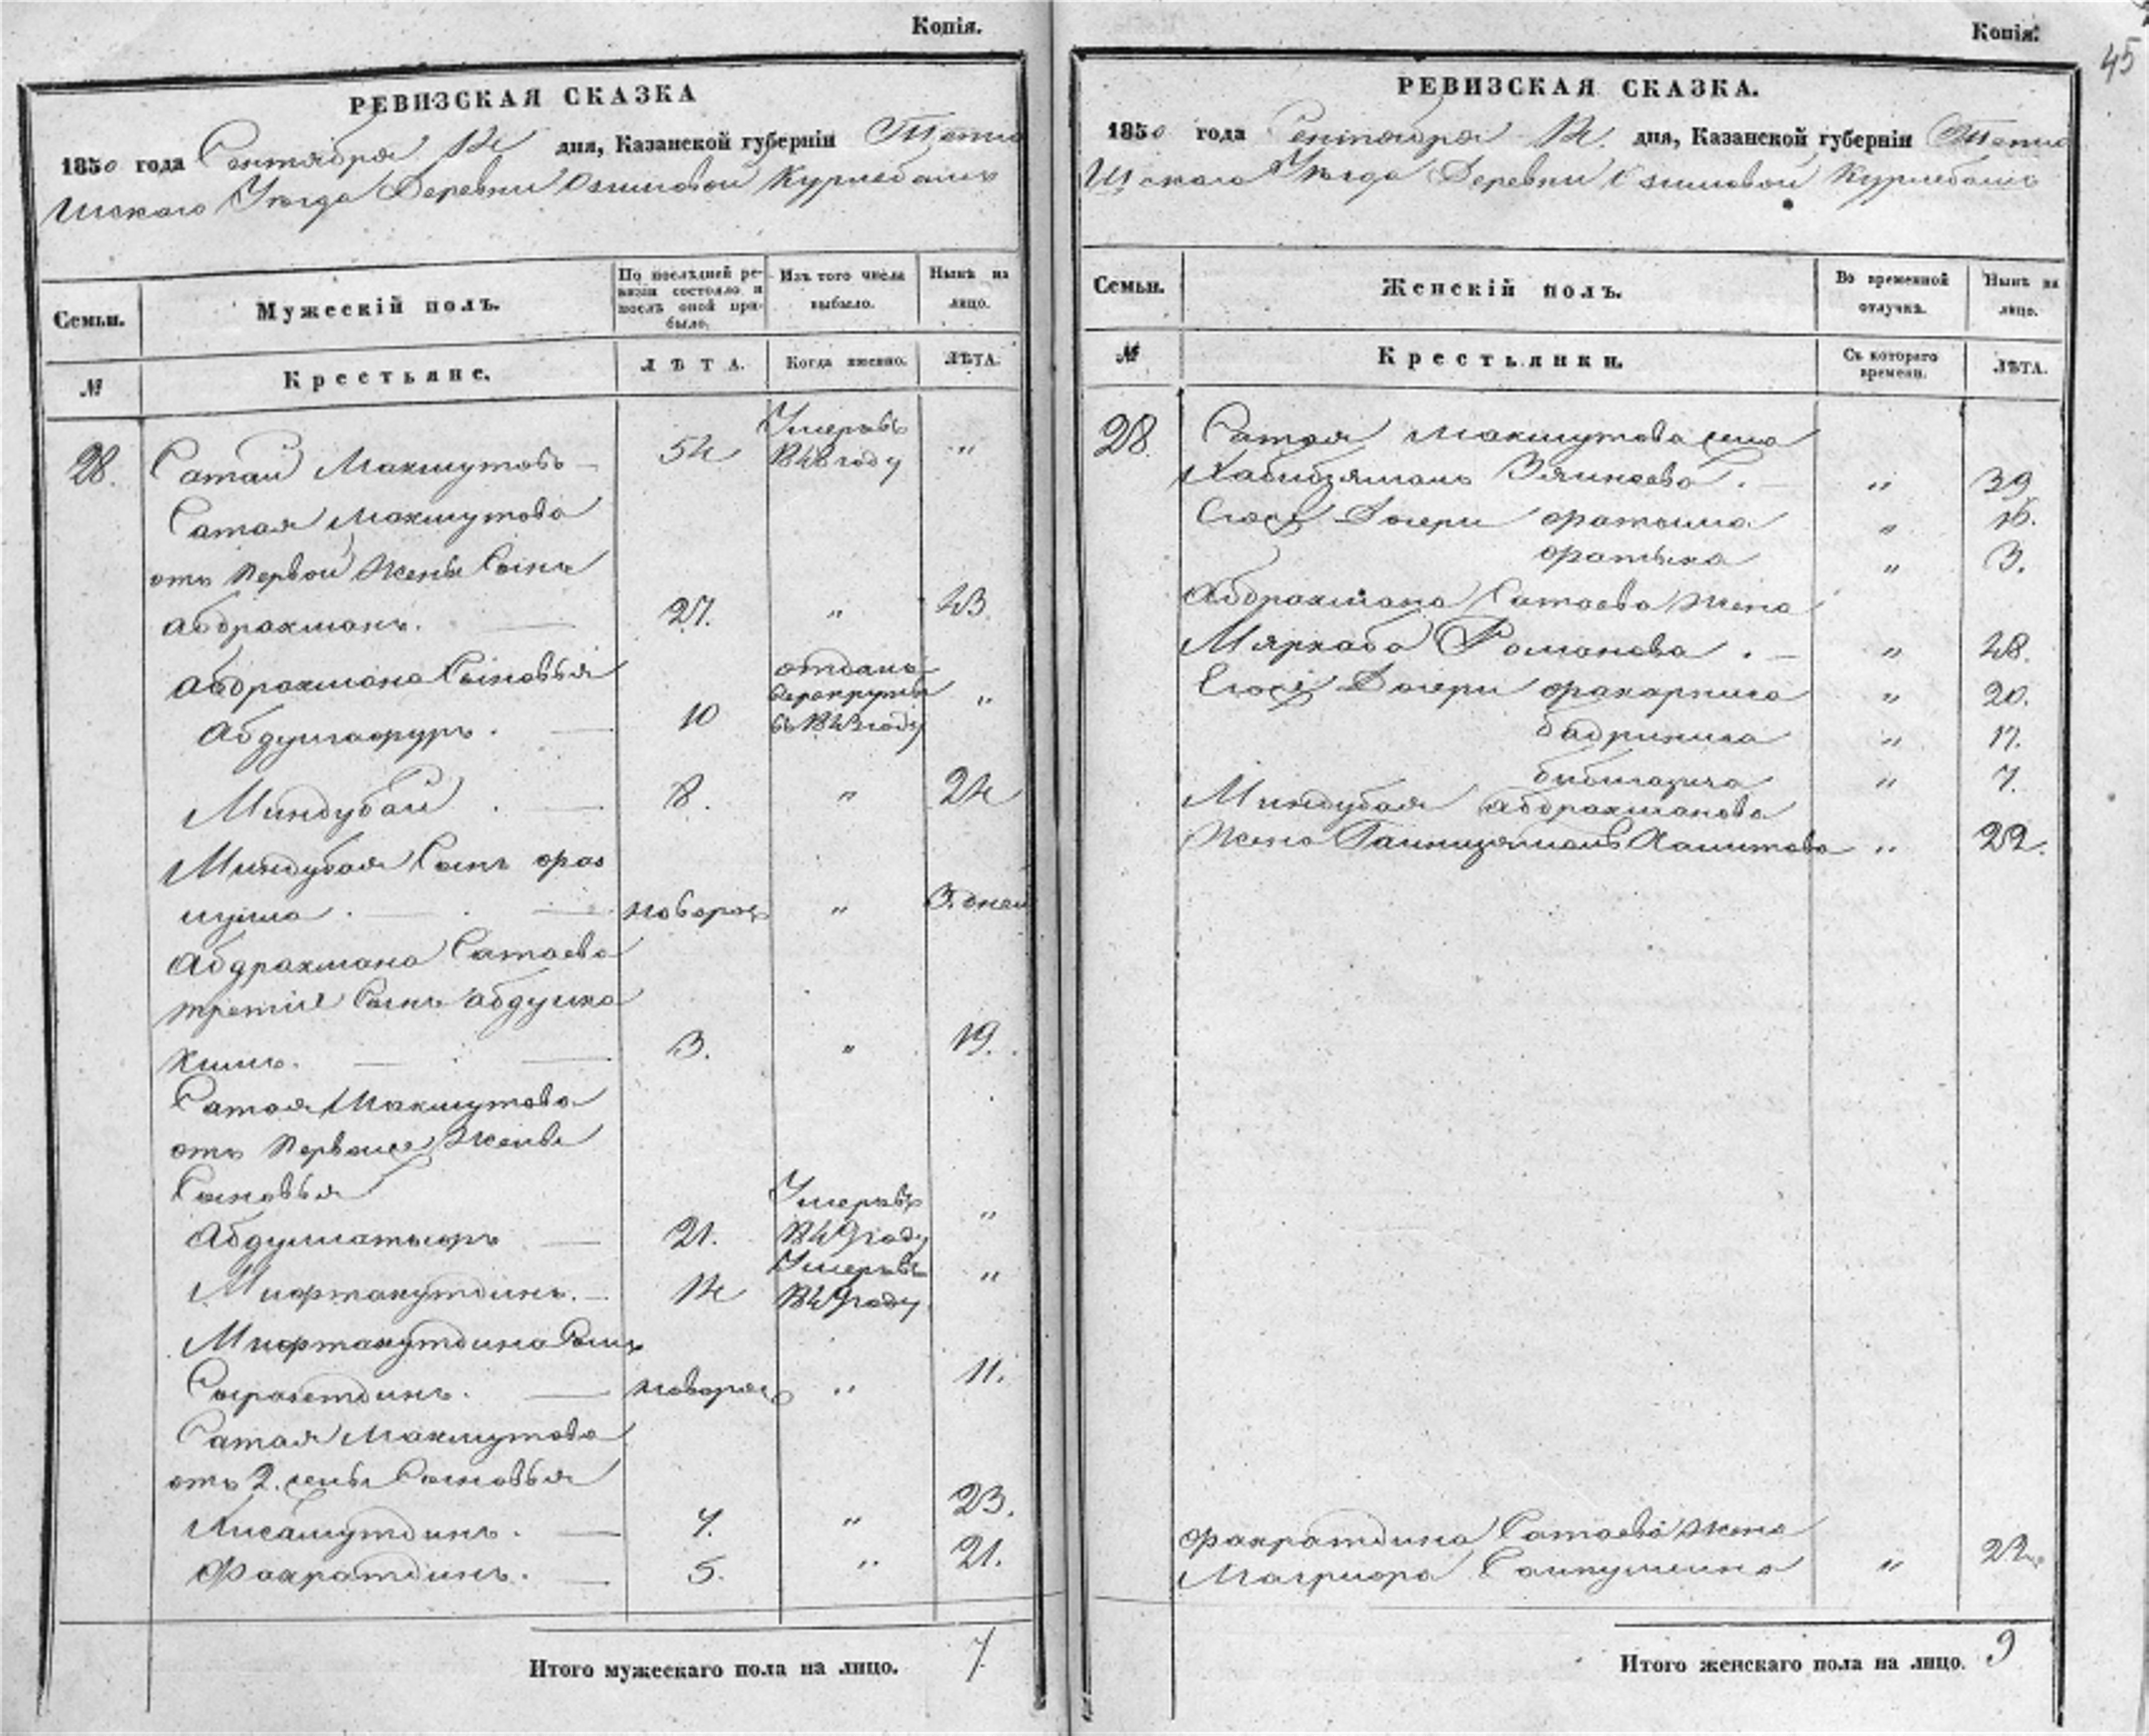 Копія.
РЕВИЗСКАЯ СКАЗКА
1850 года Сентября 14 дня, Казанской губерніи Тетю
шскаго Уезда Деревни Озимовой Курмебашъ
Семьи.
Мужескій полъ.
По послѣдней ре-
визіи состояло и
послѣ оной при-
было.
Изъ того числа
выбыло.
Нынѣ на
лицо.
№
Крестьяне.
ЛѢТА.
Когда именно.
ЛѢТА.
28. Сатай Макмутовъ 54 Умеръ въ 1848 году "
Сатая Макмутова
отъ первой жены Сынъ
Абдрахманъ. 27. " 43
Абдрахмана Сыновья
Абдулгафуръ. 10 отданъ в рекруты въ 1843 году "
Миндубай. 8. " 24
Миндубая Сынъ
новорож " 3. дней
Абдрахмана Сатаева
третій Сынъ Абдулха
кимъ. 3. " 19.
Сатая Макмутова
отъ первые жены
Сыновья
21. Умеръ въ 1849 году "
Мифтахутдинъ. 14 Умеръ въ 1849 году "
Мифтахутдина Сынъ
Сыразетдинъ. новорож " 11.
Сатая Макмутова
отъ 2. жены Сыновья
Хисамутдинъ. 7. " 23.
Фахратдинъ. 5. " 21.
Итого мужескаго пола на лицо. 7
Копія.
45
РЕВИЗСКАЯ СКАЗКА.
1850 года Сентября 14. дня, Казанской губерніи Тетю
шскаго Уезда Деревни Озимовой Курмебашъ
Семьи.
Женскій полъ.
Во временной
отлучкѣ.
Нынѣ на
лицо.
№
Крестьянки.
Съ котораго
времени.
ЛѢТА.
28. Сатая Макмутова жена
Хабибзямалъ . " 39
Дочери Фатыма " 16.
" 3.
Абдрахмана Сатаева жена
Романова. " 48.
Дочери " 20.
" 17.
" 7.
Миндубая Абдрахманова
жена Хамитова " 22.
Фахратдина Сатаева жена
" 22
Итого женскаго пола на лицо. 9